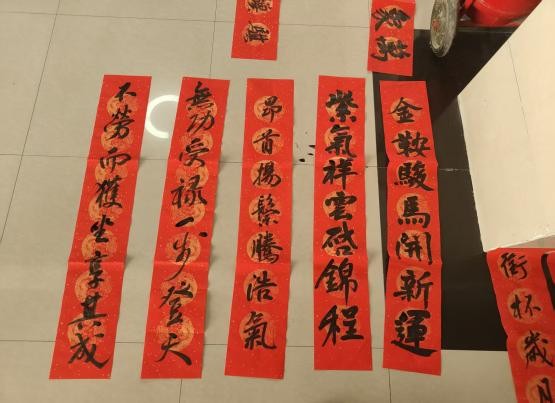 萬象
金鞍駿馬開新運
紫氣祥雲啓錦程
昂首揚鬃騰浩氣
無功受禄一步登天
不勞而獲坐享其成
銜杯歲月